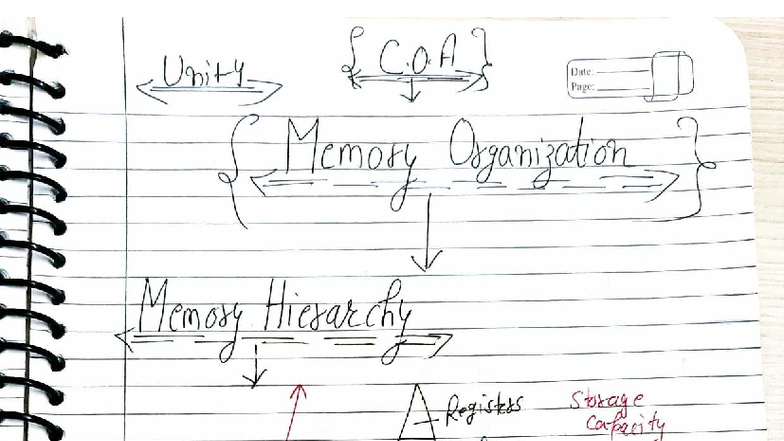 Unity
{ C.O.A }
Date:
Page:
{ Memory Organization }
Memory Hierarchy
Registers
Storage
Capacity